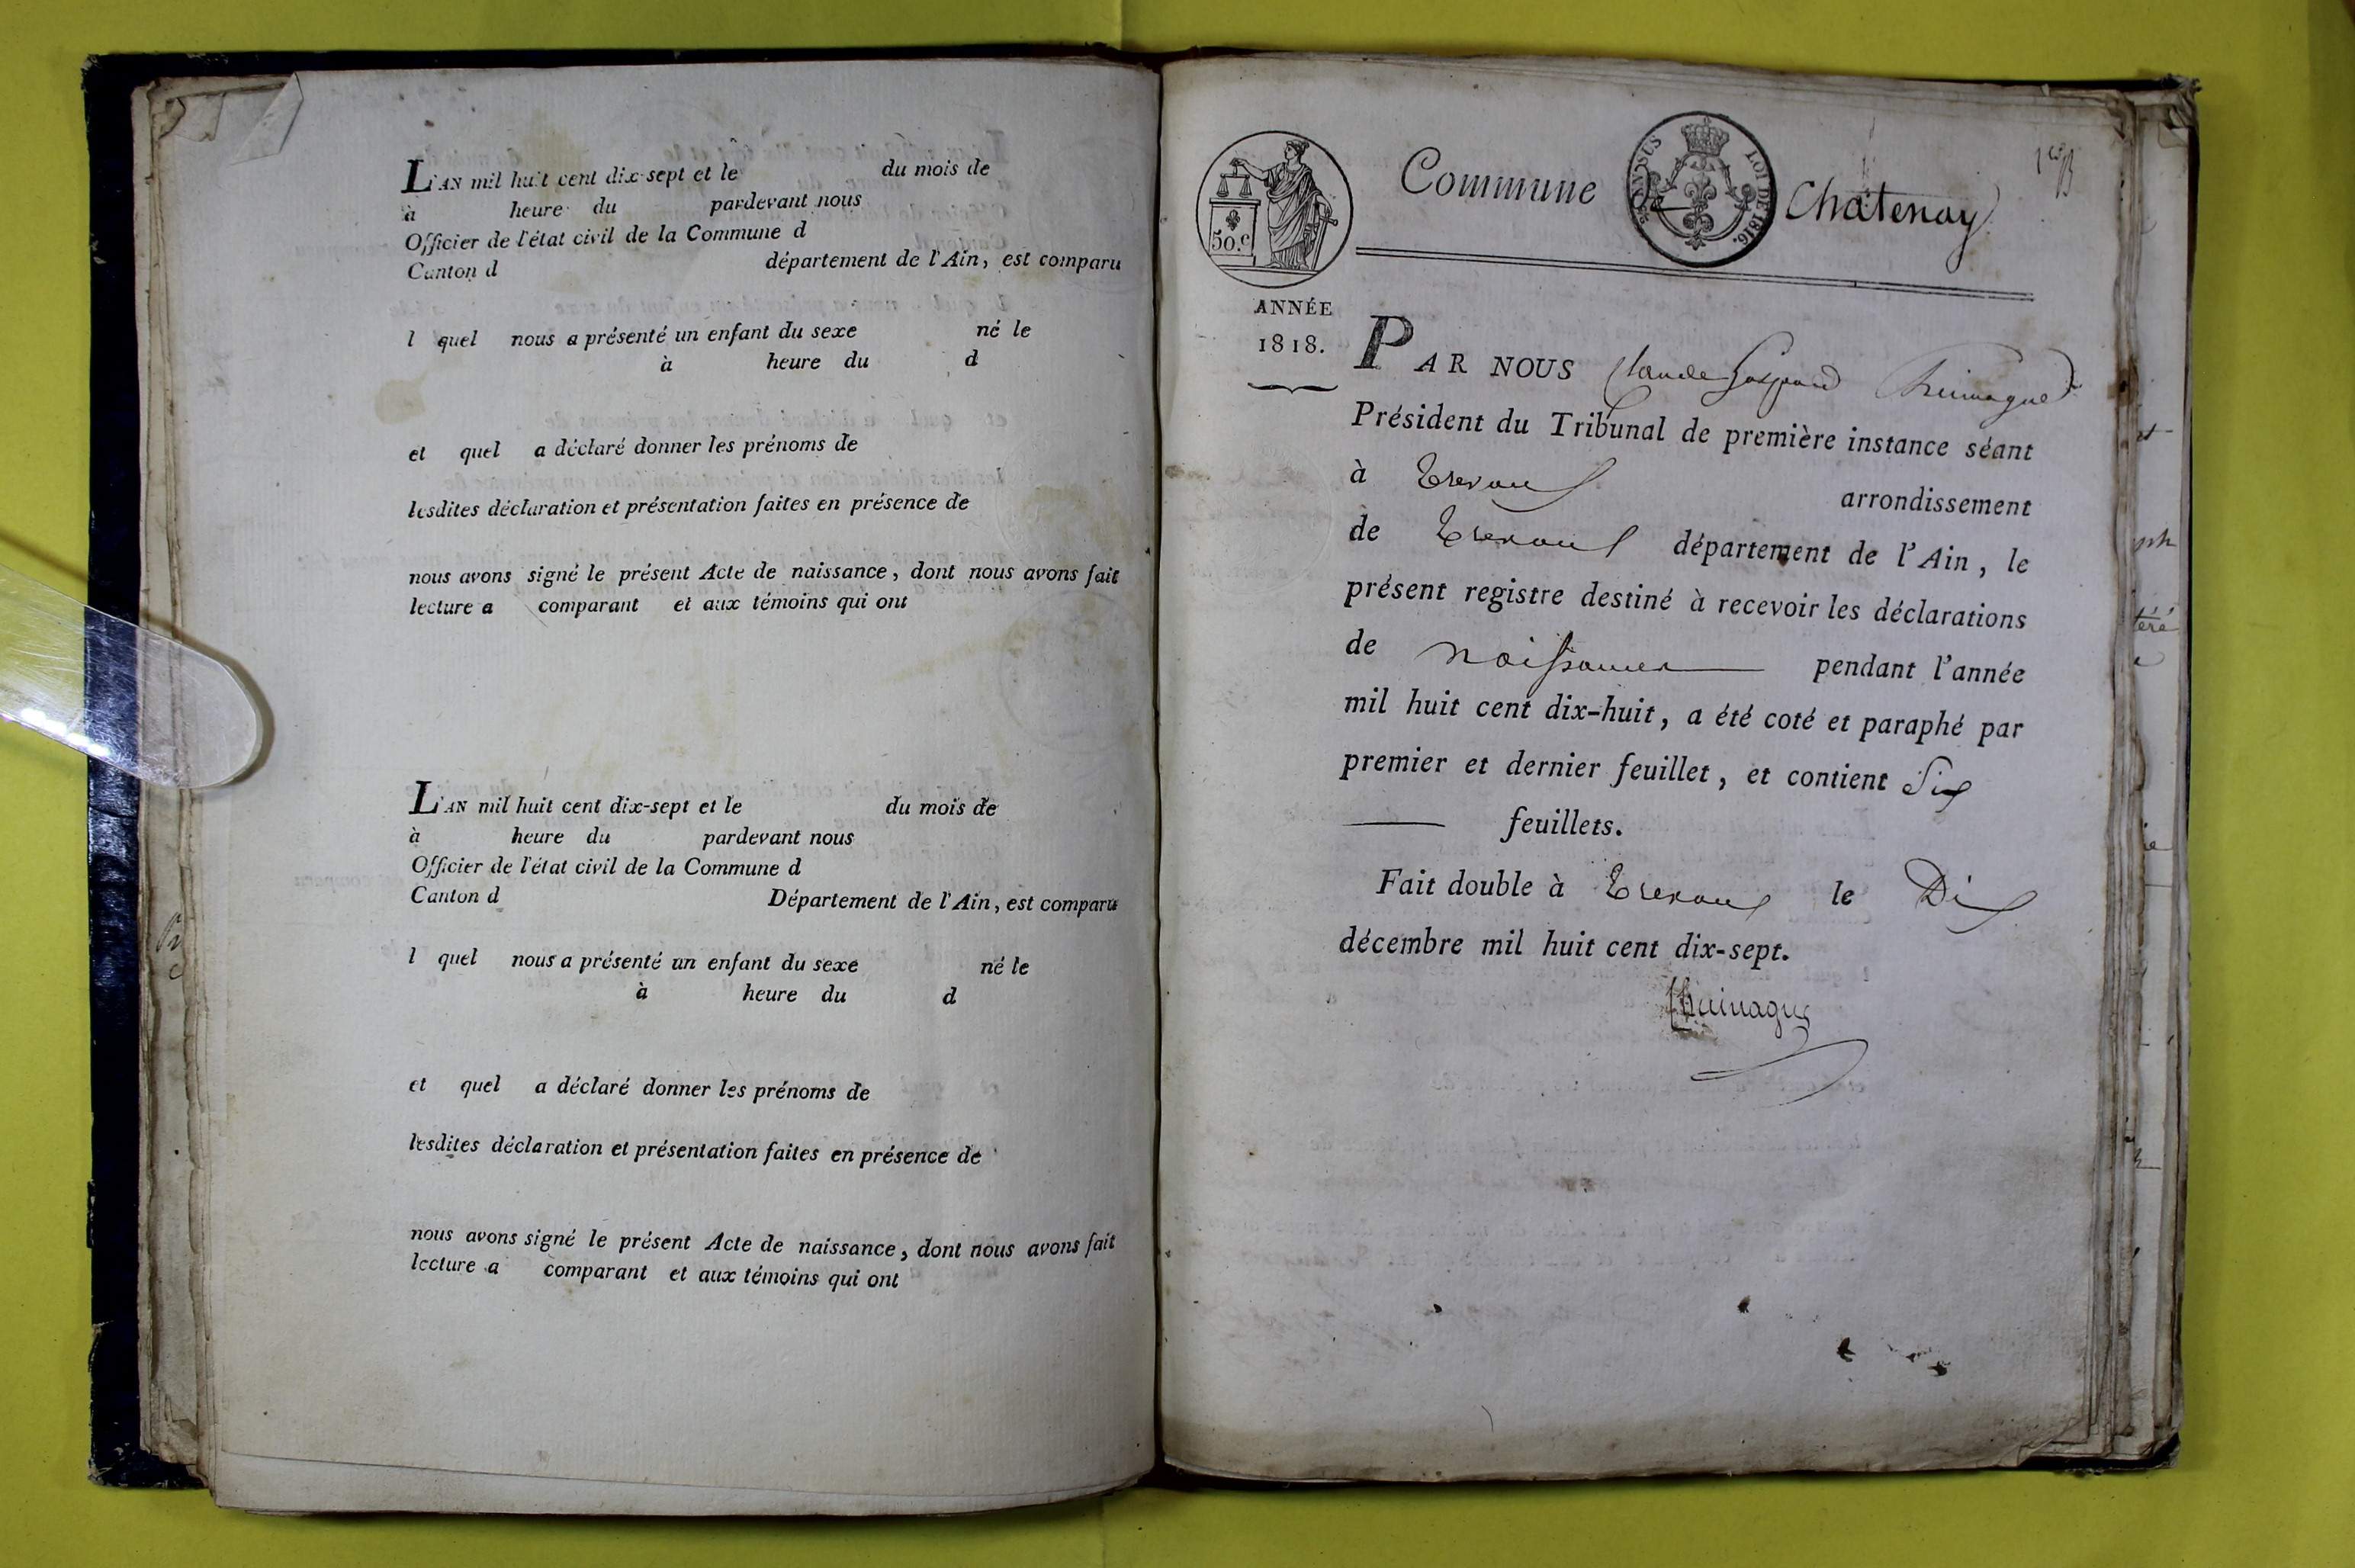 L'AN mil huit cent dix-sept et le du mois de
à heure du pardevant nous
Officier de l'état civil de la Commune d
Canton d département de l'Ain, est comparu
l quel nous a présenté un enfant du sexe né le
à heure du d
et quel a déclaré donner les prénoms de
lesdites déclaration et présentation faites en présence de
nous avons signé le présent Acte de naissance, dont nous avons fait
lecture a comparant et aux témoins qui ont
L'AN mil huit cent dix-sept et le du mois de
à heure du pardevant nous
Officier de l'état civil de la Commune d
Canton d Département de l'Ain, est comparu
l quel nous a présenté un enfant du sexe né le
à heure du d
et quel a déclaré donner les prénoms de
lesdites déclaration et présentation faites en présence de
nous avons signé le présent Acte de naissance, dont nous avons fait
lecture a comparant et aux témoins qui ont
50.c
LOI DE 1816.
Commune De Chatenay
ANNÉE
1818.
PAR NOUS Claude Gaspard
Président du Tribunal de première instance séant
à Trevoux arrondissement
de Trevoux département de l'Ain, le
présent registre destiné à recevoir les déclarations
de naissances pendant l'année
mil huit cent dix-huit, a été coté et paraphé par
premier et dernier feuillet, et contient Six
feuillets.
Fait double à Trevoux le Dix
décembre mil huit cent dix-sept.